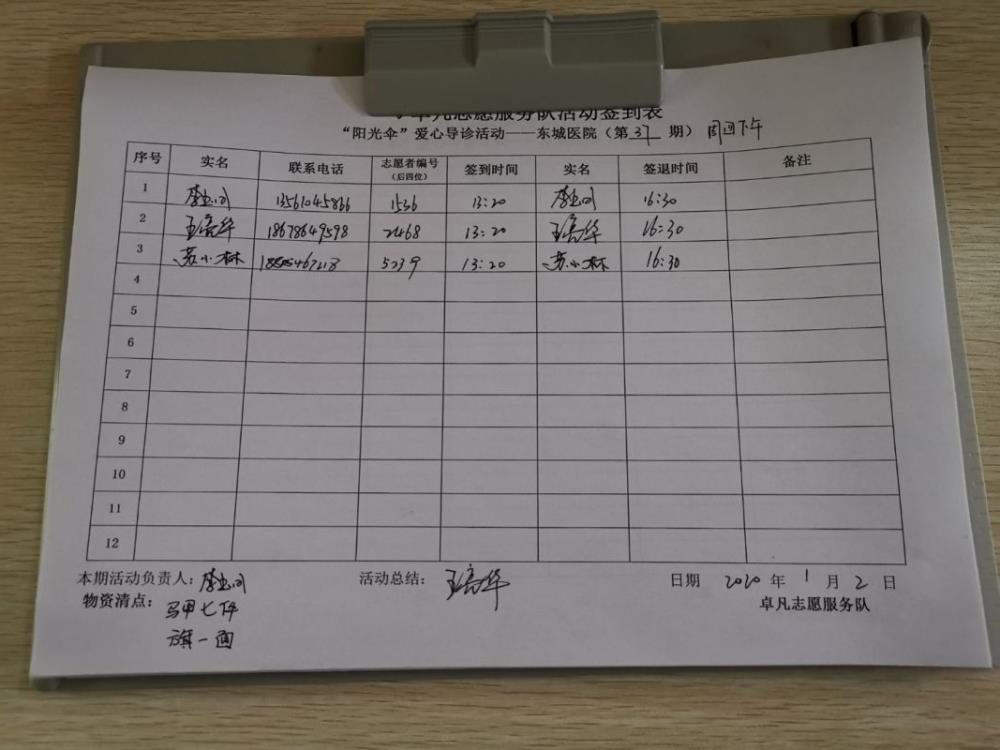 卓凡志愿服务队活动签到表
“阳光伞”爱心导诊活动——东城医院（第37期） 周四下午
序号 实名 联系电话 志愿者编号（后四位） 签到时间 实名 签退时间 备注
1 1536 13:20 16:30
2 王岩华 18678649598 2468 13:20 王岩华 16:30
3 苏小林 5239 13:20 苏小林 16:30
4
5
6
7
8
9
10
11
12
本期活动负责人： 活动总结： 日期 2020 年 1 月 2 日
物资清点：马甲七件 卓凡志愿服务队
旗一面